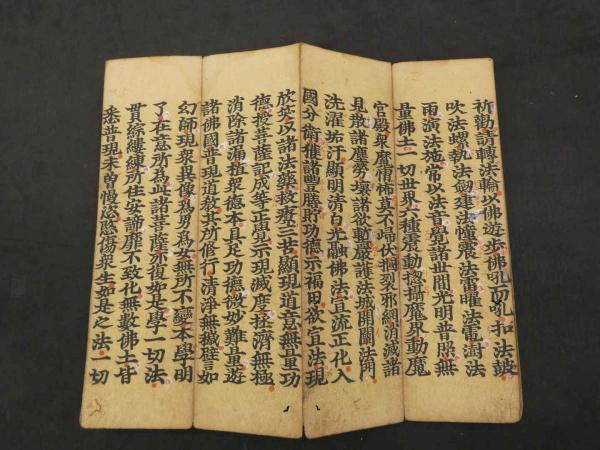 祈勸請轉法輪以佛遊步佛吼而吼扣法皷
吹法螺執法劔建法幢震法雷曜法電澍法
雨演法施常以法音覺諸世間光明普照無
量佛土一切世界六種震動摠攝魔界動魔
宮殿衆魔慴怖莫不歸伏摑裂邪網消滅諸
見散諸塵勞壞諸欲塹嚴護法城開闡法門
洗濯垢汙顯明清白光融佛法宣流正化入
國分衛獲諸豐膳貯功德示福田欲宣法現
欣笑以諸法藥救療三世顯現道意無量功
德授菩薩記成等正覺示現滅度拯濟無極
消除諸漏植衆德本具足功德微妙難量遊
諸佛國普現道教其所修行清淨無穢譬如
幻師現衆異像爲男爲女無所不變本學明
了在意所爲此諸菩薩亦復如是學一切法
貫綜縷練所住安諦靡不致化無數佛土皆
悉普現未曾慢恣愍傷衆生如是之法一切